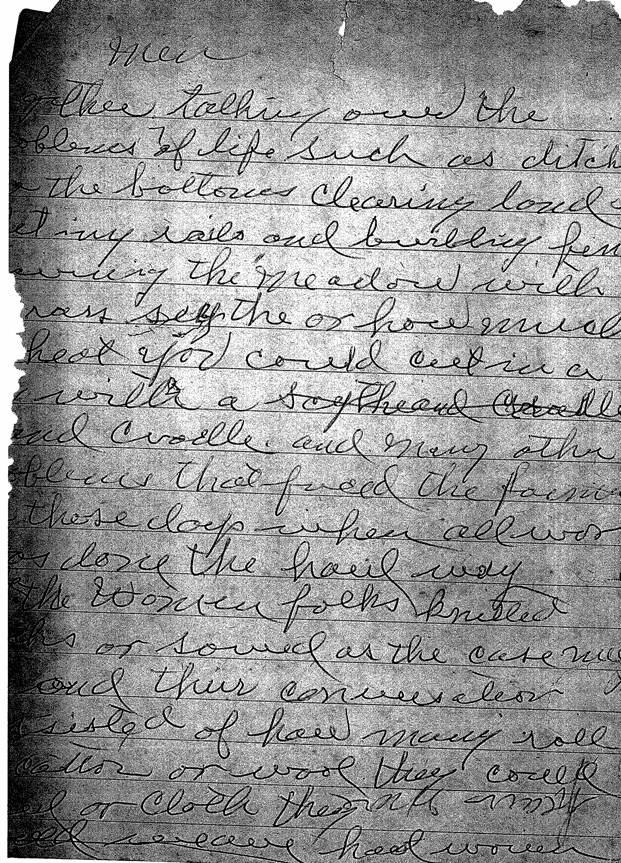 men
gather talking over the
oblems of life such as ditch
the bottoms clearing land
rails and building fen
the meadow with
rass sythe or how much
heat you could cut in a
with a scythe and
and Cradle. and many other
oblems that faced the farme
these days when all wor
as done the hard way
the Women folks knitted
or sowed as the case may
and their conversation
sisted of how many roll
cotton or wool they could
or Cloth they
had women